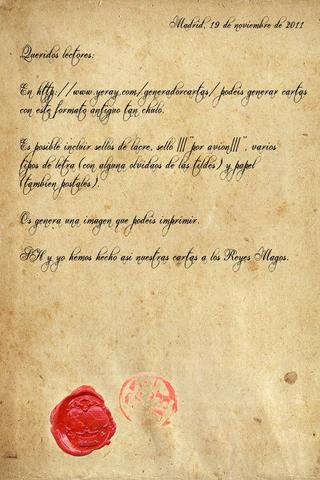 Madrid, 19 de noviembre de 2011
Queridos lectores:
En http://www.yeray.com/generadorcartas/ podeis generar cartas
con este formato antiguo tan chulo.
Es posible incluir sellos de lacre, sello |||"por avion|||", varios
tipos de letra (con alguna olvidaos de las tildes) y papel
(tambien postales).
Os genera una imagen que podeis imprimir.
SH y yo hemos hecho asi nuestras cartas a los Reyes Magos.